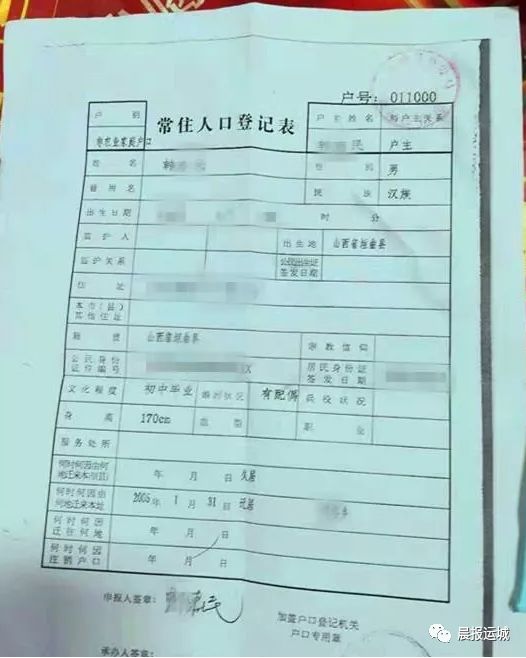 户号: 011000
常住人口登记表
户别 非农业家庭户口 户主姓名 民 与户主关系 户主
姓名 韩 民 性别 男
曾用名 民族 汉族
出生日期 时 分
监护人 出生地 山西省垣曲县
监护关系 公民出生证签发日期
住址
本市(县)其他住址
籍贯 山西省垣曲县 宗教信仰
公民身份证件编号 X 居民身份证签发日期
文化程度 初中毕业 婚姻状况 有配偶 兵役状况
身高 170cm 血型 职业
服务处所
何时何因由何地迁来本市(县) 年 月 日 久居
何时何因由何地迁来本址 2005 年 1 月 31 日
何时何因迁往何地 年 月 日
何时何因注销户口 年 月 日
申报人签章: 民
加盖户口登记机关
户口专用章
承办人签章:
晨报运城